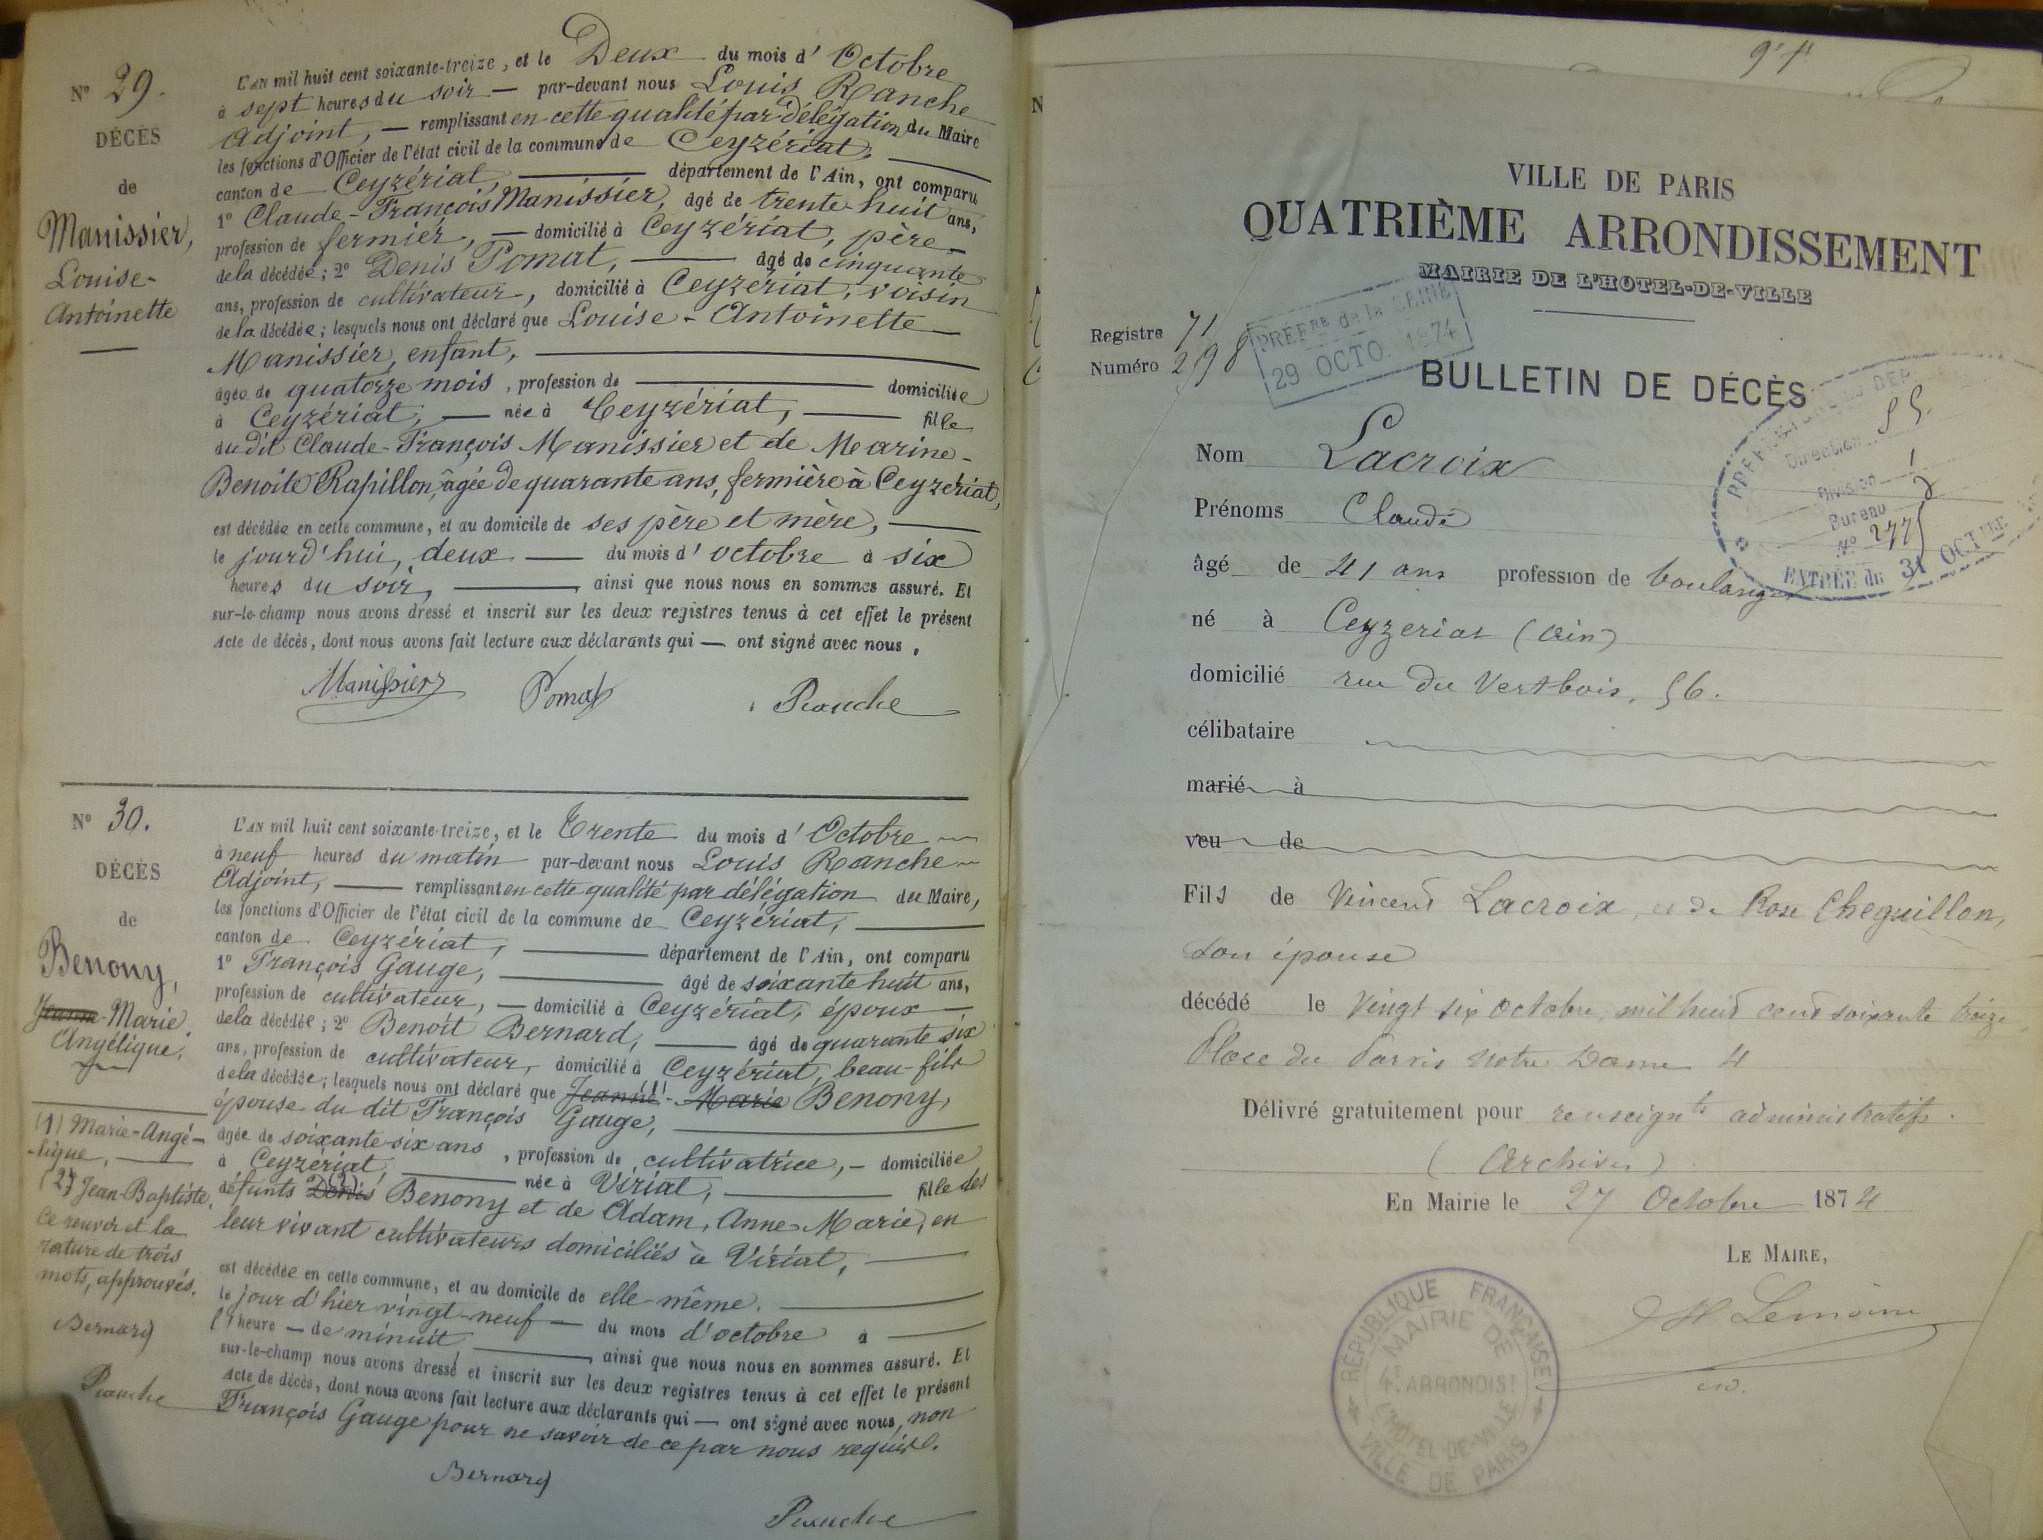 N° 29.
DÉCÈS
de
Manissier,
Louise-
Antoinette
L'AN mil huit cent soixante-treize, et le Deux du mois d'Octobre
à sept heures du soir par-devant nous Louis Ranche
Adjoint, remplissant en cette qualité par délégation du Maire
les fonctions d'Officier de l'état civil de la commune de Ceyzériat,
canton de Ceyzériat, département de l'Ain, ont comparu
1° Claude-François Manissier, âgé de trente-huit ans,
profession de fermier, domicilié à Ceyzériat, père
de la décédée; 2° Denis Pomat, âgé de cinquante
ans, profession de cultivateur, domicilié à Ceyzériat, voisin
de la décédée; lesquels nous ont déclaré que Louise-Antoinette
Manissier, enfant,
âgée de quatorze mois, profession de domiciliée
à Ceyzériat, née à Ceyzériat, fille
du dit Claude-François Manissier et de Marine-
Benoite Rapillon, âgée de quarante ans, fermière à Ceyzériat,
est décédée en cette commune, et au domicile de ses père et mère,
le jourd'hui, deux du mois d'octobre à six
heures du soir, ainsi que nous nous en sommes assuré. Et
sur-le-champ nous avons dressé et inscrit sur les deux registres tenus à cet effet le présent
Acte de décès, dont nous avons fait lecture aux déclarants qui ont signé avec nous.
Manissier Pomat Ranche
N° 30.
DÉCÈS
de
Benony,
Jeanne-Marie
Angélique,
(1) Marie-Angé-
lique,
(2) Jean-Baptiste,
Ce renvoi et la
rature de trois
mots, approuvés.
Bernard
Ranche
L'AN mil huit cent soixante-treize, et le Trente du mois d'Octobre
à neuf heures du matin par-devant nous Louis Ranche
Adjoint, remplissant en cette qualité par délégation du Maire,
les fonctions d'Officier de l'état civil de la commune de Ceyzériat,
canton de Ceyzériat, département de l'Ain, ont comparu
1° François Gauge, âgé de soixante huit ans,
profession de cultivateur, domicilié à Ceyzériat, époux
de la décédée; 2° Benoît Bernard, âgé de quarante six
ans, profession de cultivateur, domicilié à Ceyzériat, beau-fils
de la décédée; lesquels nous ont déclaré que Jeanne (1)-Marie Benony,
épouse du dit François Gauge,
âgée de soixante-six ans, profession de cultivatrice, domiciliée
à Ceyzériat, née à Viriat, fille des
défunts Denis (2) Benony et de Adam, Anne-Marie, en
leur vivant cultivateurs domiciliés à Viriat,
est décédée en cette commune, et au domicile de elle même,
le jour d'hier vingt-neuf du mois d'octobre à
l'heure de minuit, ainsi que nous nous en sommes assuré. Et
sur-le-champ nous avons dressé et inscrit sur les deux registres tenus à cet effet le présent
Acte de décès, dont nous avons fait lecture aux déclarants qui ont signé avec nous, non
François Gauge pour ne savoir de ce par nous requis.
Bernard
Ranche
VILLE DE PARIS
QUATRIÈME ARRONDISSEMENT
MAIRIE DE L'HOTEL-DE-VILLE
Registre 71
Numéro 298
PRÉFRE de la SEINE
29 OCTO. 1874
BULLETIN DE DÉCÈS
Direction
Division 1
Bureau
N° 2775
ENTRÉE du 31 OCTBRE
Nom Lacroix
Prénoms Claude
âgé de 41 ans profession de boulanger
né à Ceyzeriat (Ain)
domicilié rue du Vertbois, 56.
célibataire
marié à
veu de
Fils de Vincent Lacroix, et de Rose Cheguillon,
son épouse
décédé le vingt six octobre mil huit cent soixante treize,
Place du Parvis Notre Dame 4
Délivré gratuitement pour renseignts administratifs.
(Archives)
En Mairie le 27 Octobre 1874
LE MAIRE,
RÉPUBLIQUE FRANÇAISE
MAIRIE DE
4E ARRONDISt
L'HÔTEL-DE-VILLE
VILLE DE PARIS